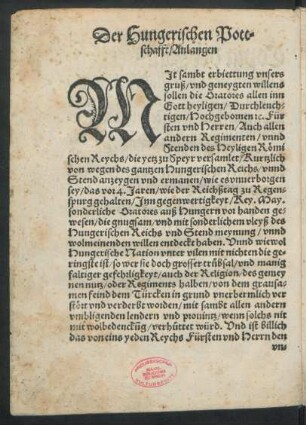 Der Hungerischen Pott-
schafft/Anlangen
MIt sambt erbiettung vnsers
gruß/vnd geneygten willens
sollen die Oratores allen inn
Gott heyligen/Durchleuch-
tigen/Hochgebornen ꝛc. Für
sten vnd Herren/Auch allen
andern Regimenten/vnnd
Stenden des Heyligen Römi
schen Reychs/die yetz zu Speyr versamlet/Kürtzlich
von wegen des gantzen Hungerischen Reychs/vnnd
Stend anzeygen vnd ermanen/wie es vnuerborgen
sey/das vor 4. Jaren/wie der Reichßtag zu Regen-
spurg gehalten/Jnn gegenwertigkeyt/Key. May.
sonderliche Oratores auß Hungern do zugegen ge-
wesen/die gnugsam/vnd mit sonderlichen vleyß des
Hungerischen Reichs vnd Stend meynung/vnnd
wolmeinenden willen entdeckt haben. Vnnd wiewol
Hungerische Nation vnter vilen mit nichten die ge-
ringste ist/so wer sie doch grosser trübsal/vnd manig
faltiger gefehligkeyt/auch der Religion/des gemey
nen nutz/oder Regiments halben/von dem grausa-
men feind dem Türcken in grund vnerbermlich ver
stört vnd verderbt worden/mit sambt allen andern
vmbligenden lendern vnd prouintz/wenn solchs nit
mit wolbedencktem/verhüttet würd. Vnd ist billich
das von eins yeden Reychs Fürsten vnd Herrn den
vn-